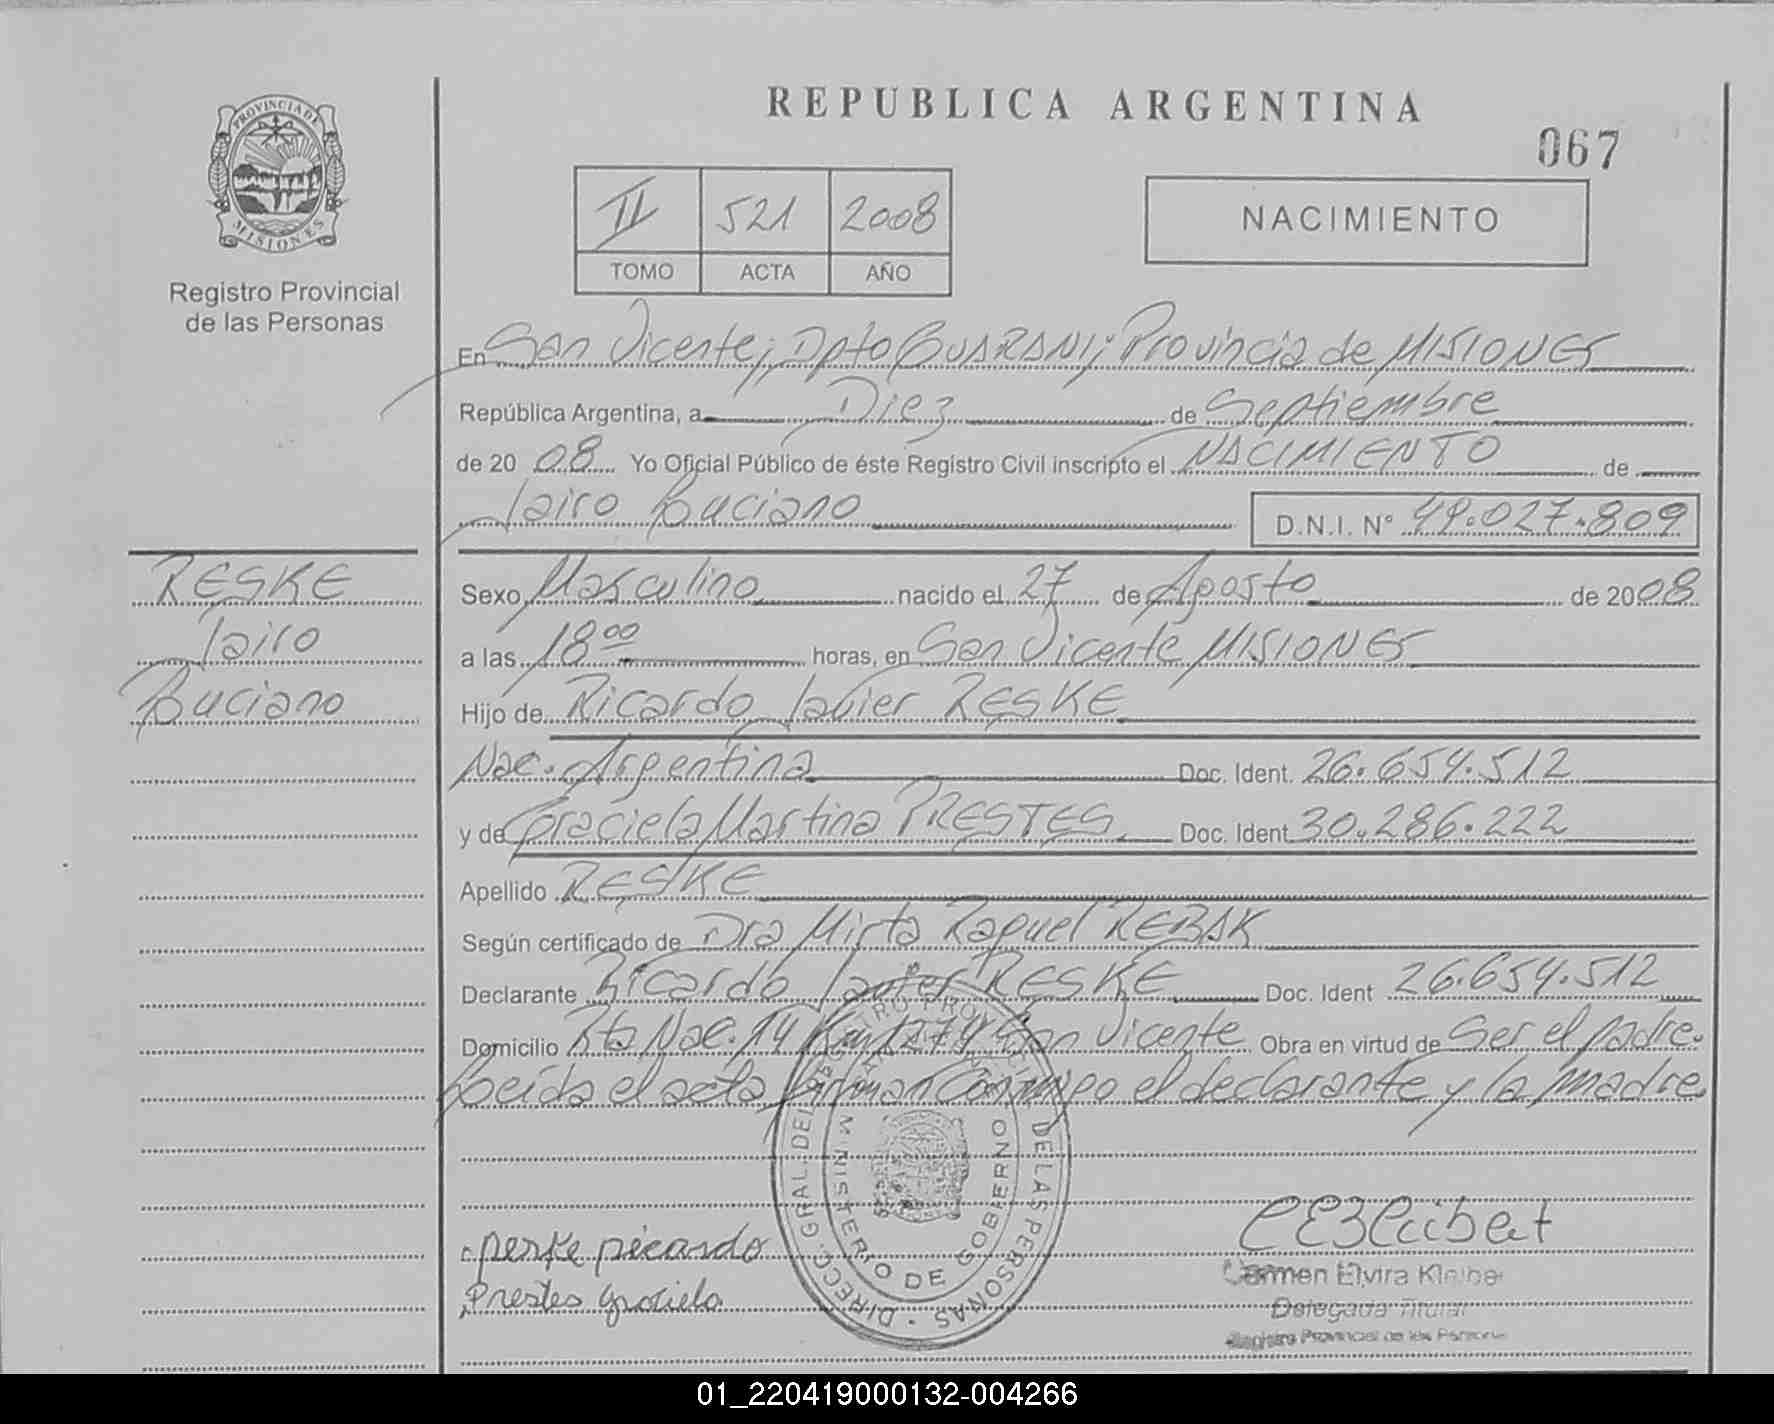 PROVINCIA DE
MISIONES
Registro Provincial
de las Personas
RESKE
Jairo
Luciano
REPUBLICA ARGENTINA
067
II 521 2008
TOMO ACTA AÑO
NACIMIENTO
En San Vicente; Dpto GUARANI; Provincia de MISIONES
República Argentina, a Diez de Septiembre
de 20 08 Yo Oficial Público de éste Registro Civil inscripto el NACIMIENTO de
Jairo Luciano D.N.I. N° 49.027.809
Sexo Masculino nacido el 27 de Agosto de 2008
a las 18 00 horas, en San Vicente MISIONES
Hijo de Ricardo Javier RESKE
Nac. Argentina Doc. Ident. 26.654.512
y de Graciela Martina PRESTES Doc. Ident 30.286.222
Apellido RESKE
Según certificado de Dra Mirta Raquel REBAK
Declarante Ricardo Javier RESKE Doc. Ident 26.654.512
Domicilio Rta Nac. 14 Km 1279 San Vicente Obra en virtud de Ser el padre.
Leída el acta firman conmigo el declarante y la madre.
DIRECC. GRAL. DEL REGISTRO PROVINCIAL DE LAS PERSONAS
MINISTERIO DE GOBIERNO
reske ricardo
Prestes graciela
Carmen Elvira
Delegada Titular
Registro Provincial de las Personas
01_220419000132-004266